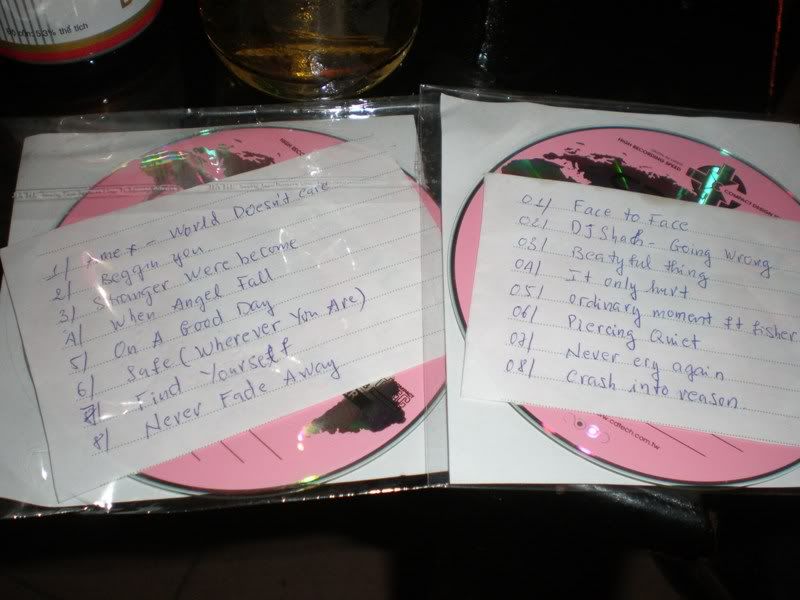 5.3% thể tích
HIGH REC
1/ Amex - World Doesn't care
2/ Beggin you
3/ Stranger Were become
4/ When Angel Fall
5/ On A Good Day
6/ Safe (Wherever You Are)
7/ Find Yourself
8/ Never Fade Away
HIGH RECORDING SPEED
COMPACT DESIGN
01/ Face to Face
02/ DJ Shah - Going Wrong
03/ Beatyful thing
04/ It only hurt
05/ ordinary moment ft fisher
06/ Piercing Quiet
07/ Never cry again
08/ Crash into reason.
www.cdtech.com.tw